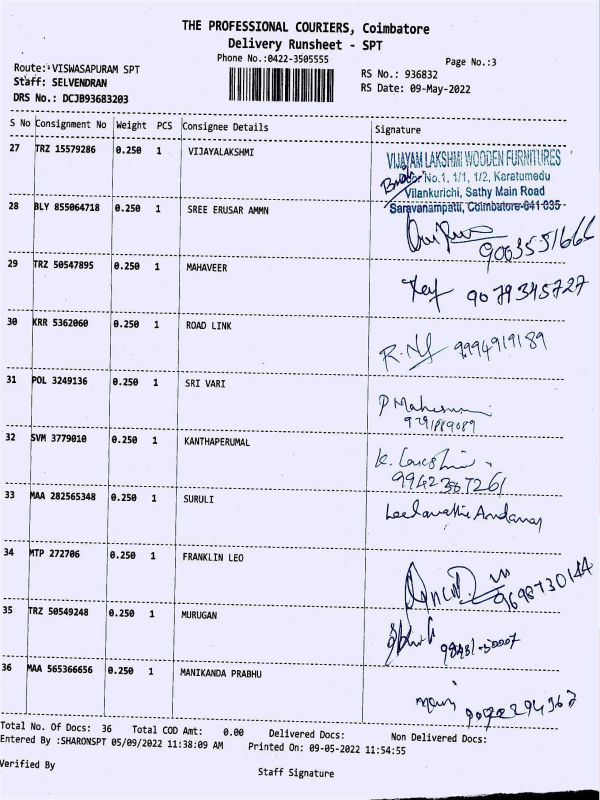 THE PROFESSIONAL COURIERS, Coimbatore
Delivery Runsheet - SPT
Phone No.:0422-3505555
Page No.:3
Route: VISWASAPURAM SPT
RS No.: 936832
Staff: SELVENDRAN
RS Date: 09-May-2022
DRS No.: DCJB93683203
S No Consignment No Weight PCS Consignee Details Signature
27 TRZ 15579286 0.250 1 VIJAYALAKSHMI
VIJAYAM LAKSHMI WOODEN FURNITURES
No.1, 1/1, 1/2, Karatumedu
Vilankurichi, Sathy Main Road
Saravanampatti, Coimbatore-641 035
28 BLY 855064718 0.250 1 SREE ERUSAR AMMN
9003551666
29 TRZ 50547895 0.250 1 MAHAVEER
9079345727
30 KRR 5362060 0.250 1 ROAD LINK
9994919189
31 POL 3249136 0.250 1 SRI VARI
P Maheswari
9791889089
32 SVM 3779010 0.250 1 KANTHAPERUMAL
K. Lakshmi
9942387261
33 MAA 282565348 0.250 1 SURULI
Leelavathi Andavar
34 MTP 272706 0.250 1 FRANKLIN LEO
9698730144
35 TRZ 50549248 0.250 1 MURUGAN
36 MAA 565366656 0.250 1 MANIKANDA PRABHU
Mani
Total No. Of Docs: 36 Total COD Amt: 0.00 Delivered Docs: Non Delivered Docs:
Entered By :SHARONSPT 05/09/2022 11:38:09 AM Printed On: 09-05-2022 11:54:55
Verified By
Staff Signature